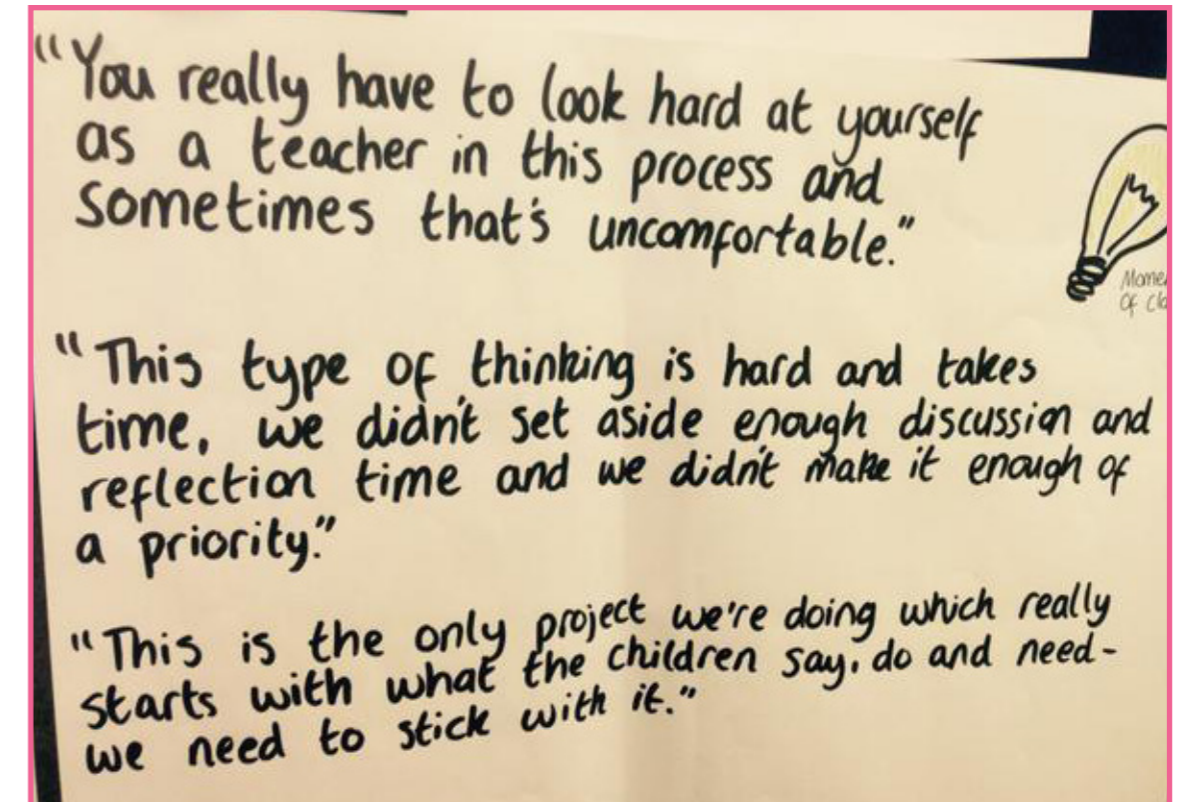 "You really have to look hard at yourself
as a teacher in this process and
sometimes that's uncomfortable."
"This type of thinking is hard and takes
time, we didn't set aside enough discussion and
reflection time and we didn't make it enough of
a priority."
"This is the only project we're doing which really
starts with what the children say, do and need-
we need to stick with it."
of